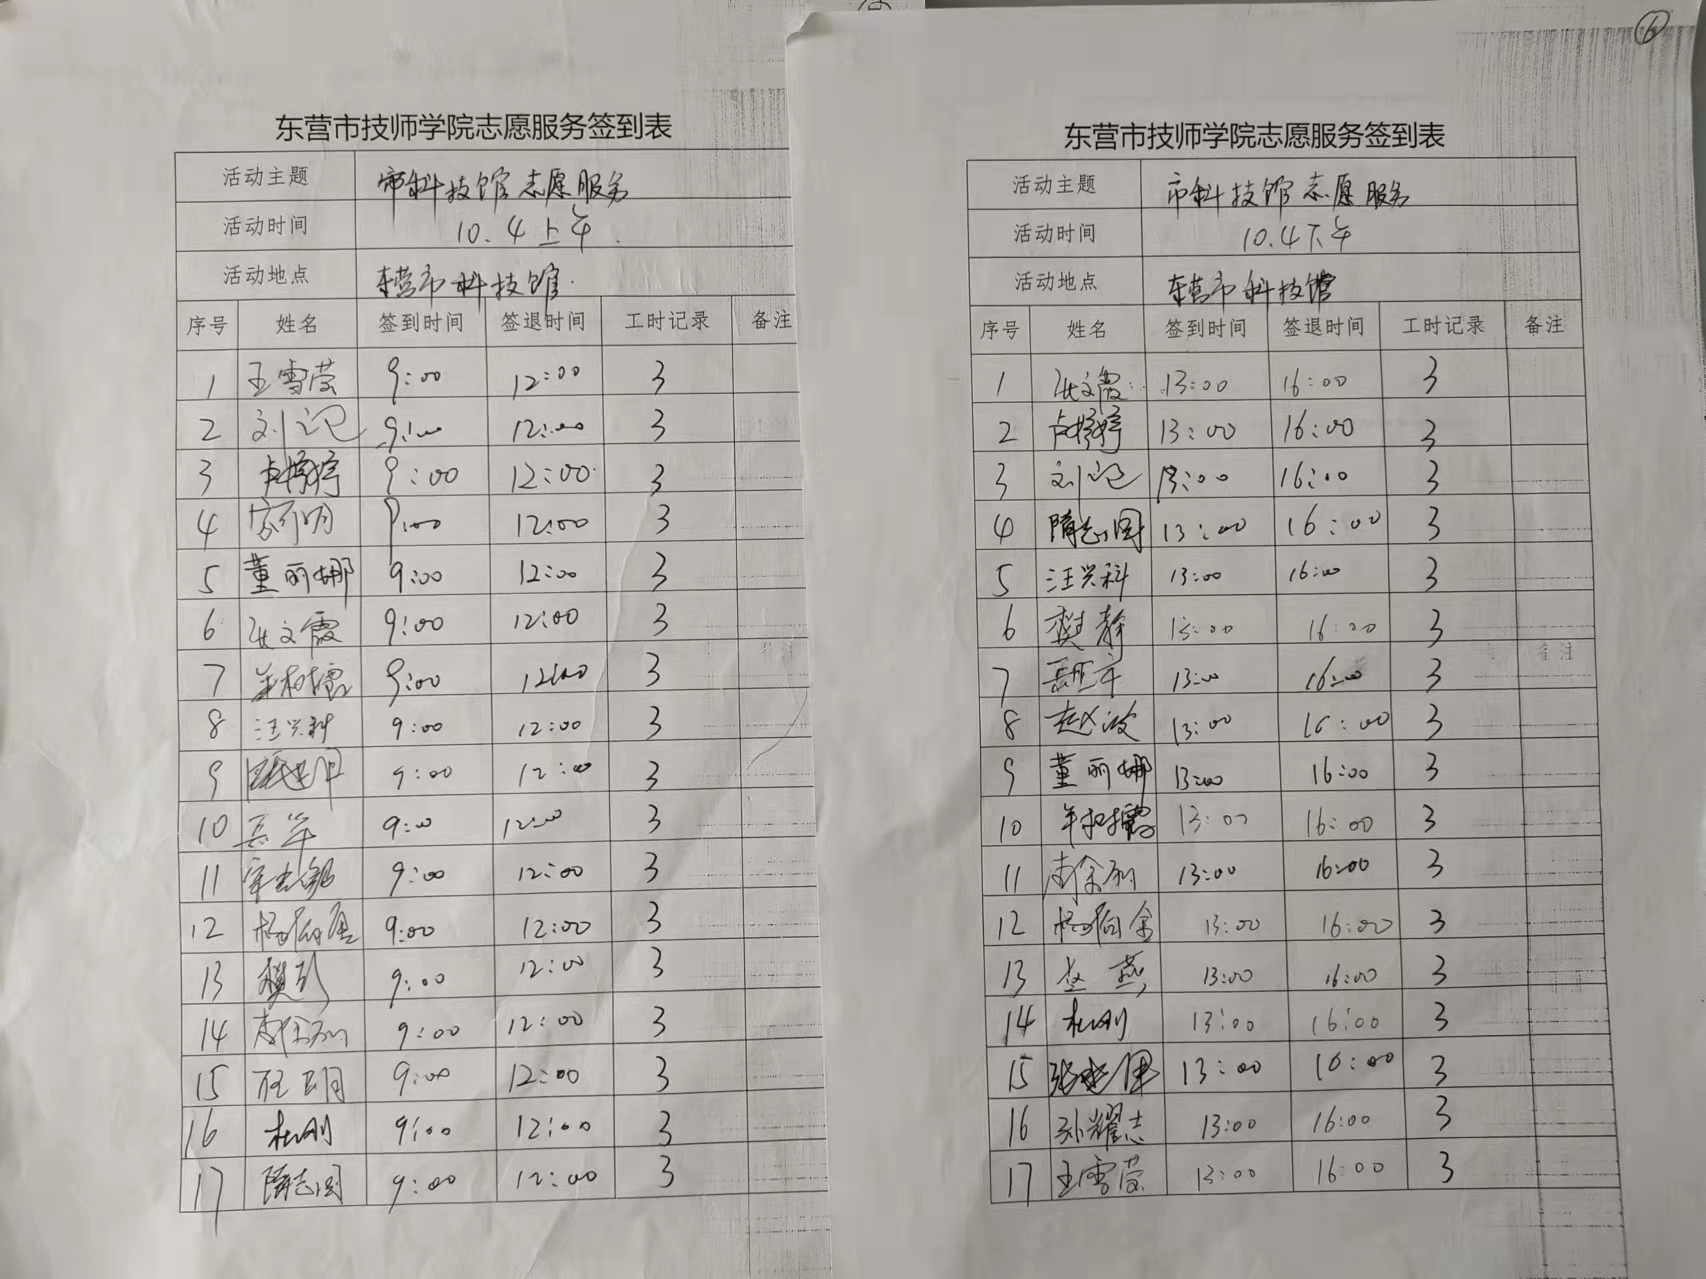 东营市技师学院志愿服务签到表
活动主题 市科技馆志愿服务
活动时间 10.4上午
活动地点 东营市科技馆
序号 姓名 签到时间 签退时间 工时记录 备注
1 王雪莹 9:00 12:00 3
2 9:00 12:00 3
3 卢婷婷 9:00 12:00 3
4 9:00 12:00 3
5 董丽娜 9:00 12:00 3
6 张文霞 9:00 12:00 3
7 9:00 12:00 3
8 汪兴科 9:00 12:00 3
9 9:00 12:00 3
10 9:00 12:00 3
11 9:00 12:00 3
12 9:00 12:00 3
13 9:00 12:00 3
14 9:00 12:00 3
15 9:00 12:00 3
16 杜刚 9:00 12:00 3
17 隋志国 9:00 12:00 3
6
东营市技师学院志愿服务签到表
活动主题 市科技馆志愿服务
活动时间 10.4下午
活动地点 东营市科技馆
序号 姓名 签到时间 签退时间 工时记录 备注
1 张文霞 13:00 16:00 3
2 卢婷婷 13:00 16:00 3
3 13:00 16:00 3
4 隋志国 13:00 16:00 3
5 汪兴科 13:00 16:00 3
6 樊静 13:00 16:00 3
7 13:00 16:00 3
8 赵波 13:00 16:00 3
9 董丽娜 13:00 16:00 3
10 13:00 16:00 3
11 13:00 16:00 3
12 13:00 16:00 3
13 13:00 16:00 3
14 杜刚 13:00 16:00 3
15 13:00 16:00 3
16 孙耀志 13:00 16:00 3
17 王雪莹 13:00 16:00 3